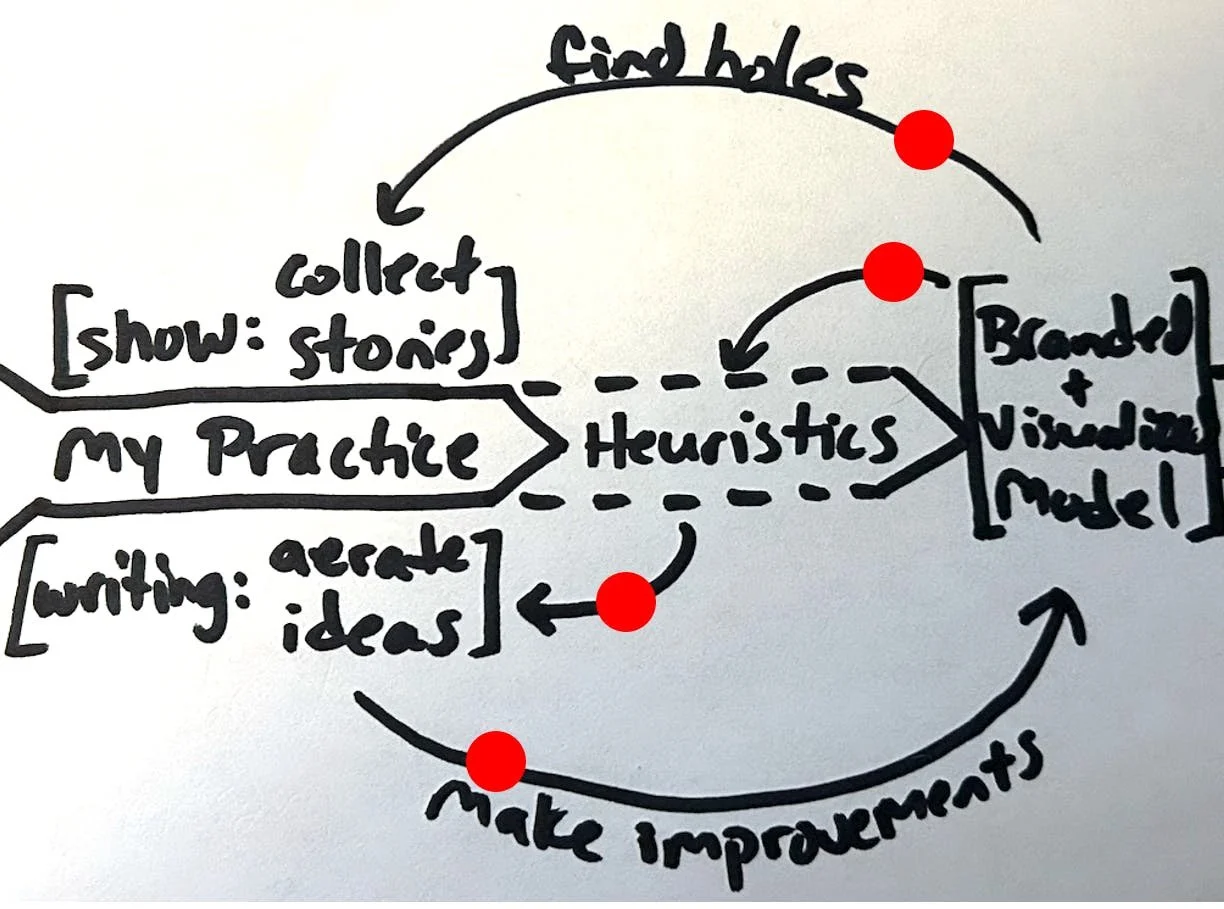 find holes
collect
[show: stories]
My Practice
Heuristics
[Branded
+
Visualized
Model]
[writing: aerate
ideas]
Make improvements